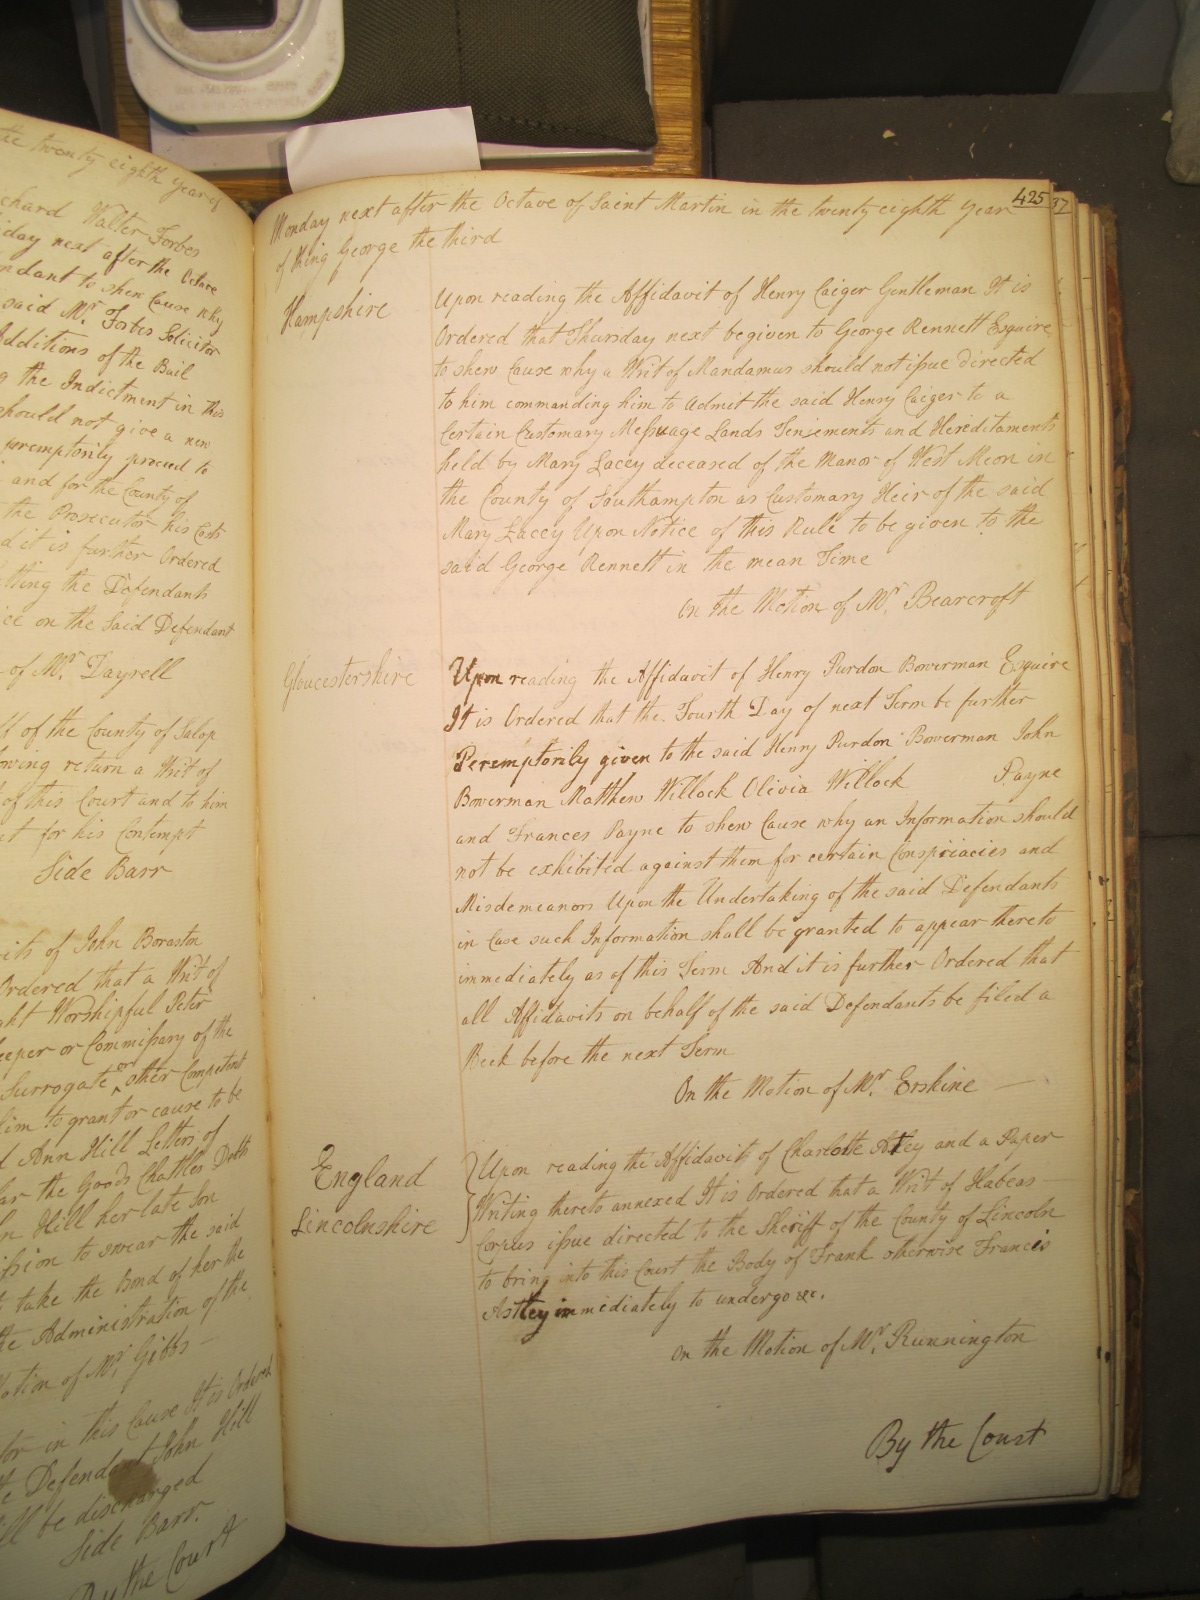 the twenty eighth year of
chard Walter Forbes
day next after the Octave
ndant to shew Cause why
said Mr. Forbes Solicitor
Additions of the Bail
g the Indictment in this
should not give a new
peremptorily proceed to
and for the County of
the Prosecutor his Costs
d it is further Ordered
tting the Defendants
ice on the said Defendant
of Mr. Dayrell
ff of the County of Salop
owing return a Writ of
of this Court and to him
et for his Contempt
Side Barr
its of John Boraston
Ordered that a Writ of
ght Worshipful Peter
eeper or Commissary of the
Surrogate or other Competent
him to grant or cause to be
d Ann Hill Letters of
lar the Goods Chattles Debts
n Hill her late Son
ission to swear the said
take the Bond of her the
the Administration of the
otion of Mr. Gibbs
tor in this Cause It is Ordered
e Defendant John Hill
ll be discharged
Side Barr.
By the Court
425
37
Monday next after the Octave of Saint Martin in the twenty eighth Year
of King George the third
Hampshire
Upon reading the Affidavit of Henry Caiger Gentleman It is
Ordered that Thursday next be given to George Rennett Esquire
to shew Cause why a Writ of Mandamus should not issue directed
to him commanding him to Admit the said Henry Caiger to a
Certain Customary Messuage Lands Tenements and Hereditaments
held by Mary Lacey deceased of the Manor of West Meon in
the County of Southampton as Customary Heir of the said
Mary Lacey Upon Notice of this Rule to be given to the
said George Rennett in the mean Time
On the Motion of Mr. Bearcroft
Gloucestershire
Upon reading the Affidavit of Henry Purdon Bowerman Esquire
It is Ordered that the Fourth Day of next Term be further
Peremptorily given to the said Henry Purdon Bowerman John
Bowerman Matthew Willock Olivia Willock Payne
and Frances Payne to shew Cause why an Information should
not be exhibited against them for certain Conspiracies and
Misdemeanors Upon the Undertaking of the said Defendants
in Case such Information shall be granted to appear thereto
immediately as of this Term And it is further Ordered that
all Affidavits on behalf of the said Defendants be filed a
Week before the next Term
On the Motion of Mr. Erskine
England
Lincolnshire
Upon reading the Affidavit of Charlotte Astley and a Paper
Writing thereto annexed It is Ordered that a Writ of Habeas
Corpus issue directed to the Sheriff of the County of Lincoln
to bring into this Court the Body of Frank otherwise Francis
Astley immediately to undergo &c.
On the Motion of Mr. Runnington
By the Court